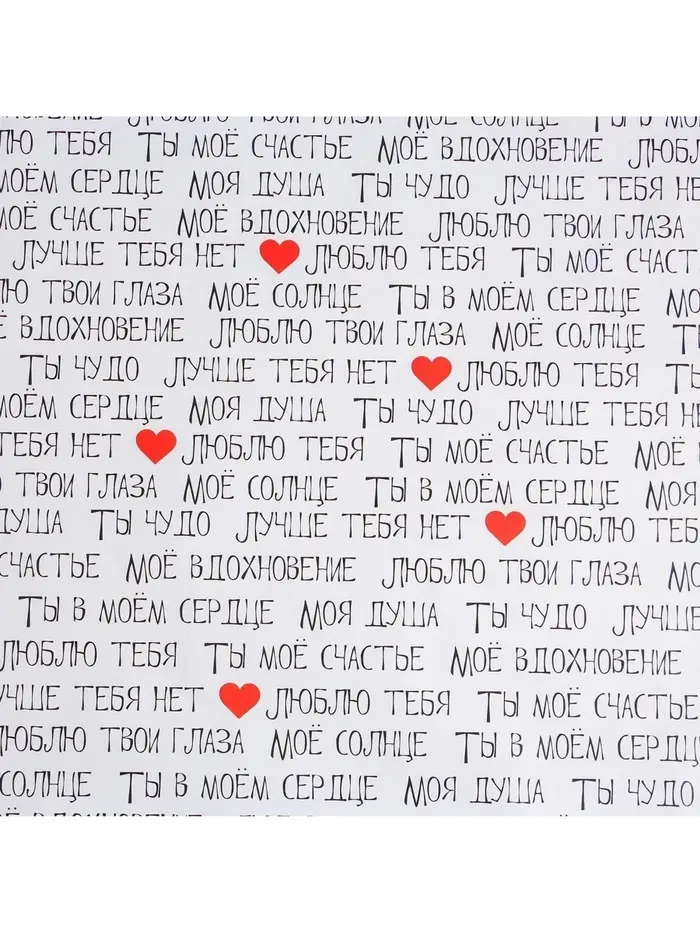 ЛЮБЛЮ ТВОИ ГЛАЗА МОЁ СОЛНЦЕ ТЫ В
ЛЮ ТЕБЯ ТЫ МОЁ СЧАСТЬЕ МОЁ ВДОХНОВЕНИЕ ЛЮБЛ
МОЁМ СЕРДЦЕ МОЯ ДУША ТЫ ЧУДО ЛУЧШЕ ТЕБЯ НЕ
МОЁ СЧАСТЬЕ МОЁ ВДОХНОВЕНИЕ ЛЮБЛЮ ТВОИ ГЛАЗА
ЛУЧШЕ ТЕБЯ НЕТ ЛЮБЛЮ ТЕБЯ ТЫ МОЁ СЧАСТ
Ю ТВОИ ГЛАЗА МОЁ СОЛНЦЕ ТЫ В МОЁМ СЕРДЦЕ МО
Ё ВДОХНОВЕНИЕ ЛЮБЛЮ ТВОИ ГЛАЗА МОЁ СОЛНЦЕ Т
ТЫ ЧУДО ЛУЧШЕ ТЕБЯ НЕТ ЛЮБЛЮ ТЕБЯ Т
МОЁМ СЕРДЦЕ МОЯ ДУША ТЫ ЧУДО ЛУЧШЕ ТЕБЯ НЕ
ТЕБЯ НЕТ ЛЮБЛЮ ТЕБЯ ТЫ МОЁ СЧАСТЬЕ МОЁ
ТВОИ ГЛАЗА МОЁ СОЛНЦЕ ТЫ В МОЁМ СЕРДЦЕ МОЯ
ДУША ТЫ ЧУДО ЛУЧШЕ ТЕБЯ НЕТ ЛЮБЛЮ ТЕБ
СЧАСТЬЕ МОЁ ВДОХНОВЕНИЕ ЛЮБЛЮ ТВОИ ГЛАЗА МО
ТЫ В МОЁМ СЕРДЦЕ МОЯ ДУША ТЫ ЧУДО ЛУЧШЕ
ЛЮБЛЮ ТЕБЯ ТЫ МОЁ СЧАСТЬЕ МОЁ ВДОХНОВЕНИЕ
УЧШЕ ТЕБЯ НЕТ ЛЮБЛЮ ТЕБЯ ТЫ МОЁ СЧАСТЬЕ
ЛЮБЛЮ ТВОИ ГЛАЗА МОЁ СОЛНЦЕ ТЫ В МОЁМ СЕРДЦ
СОЛНЦЕ ТЫ В МОЁМ СЕРДЦЕ МОЯ ДУША ТЫ ЧУДО